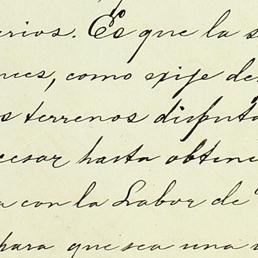 erios. Es que la s
nces, como exije de
s terrenos disputa
cesar hasta obtene
a con la Labor de
para que sea una